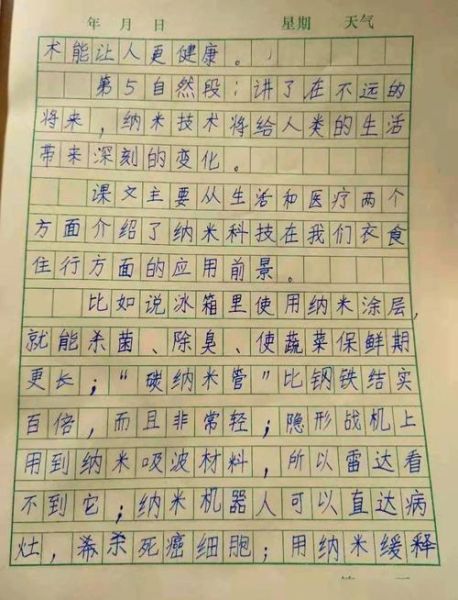 年 月 日 星期 天气
术能让人更健康。
第5自然段：讲了在不远的
将来，纳米技术将给人类的生活
带来深刻的变化。
课文主要从生活和医疗两个
方面介绍了纳米科技在我们衣食
住行方面的应用前景。
比如说冰箱里使用纳米涂层，
就能杀菌、除臭、使蔬菜保鲜期
更长；“碳纳米管”比钢铁结实
百倍，而且非常轻；隐形战机上
用到纳米吸波材料，所以雷达看
不到它；纳米机器人可以直达病
灶，杀死癌细胞；用纳米缓释